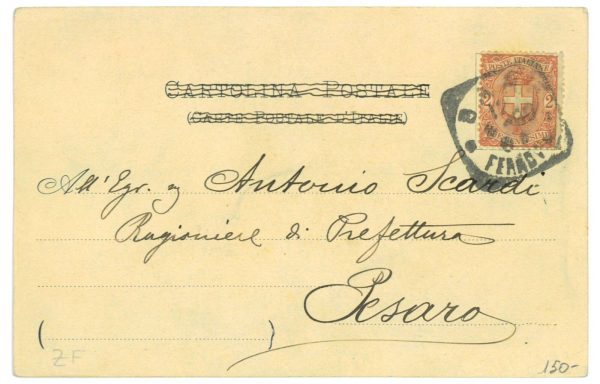 CARTOLINA POSTALE
(CARTE POSTALE D'ITALIE)
POSTE ITALIANE
2 2
All' Egr. Sig Antonio Scardi
Ragioniere di Prefettura
Pesaro
( )
ZF
150-